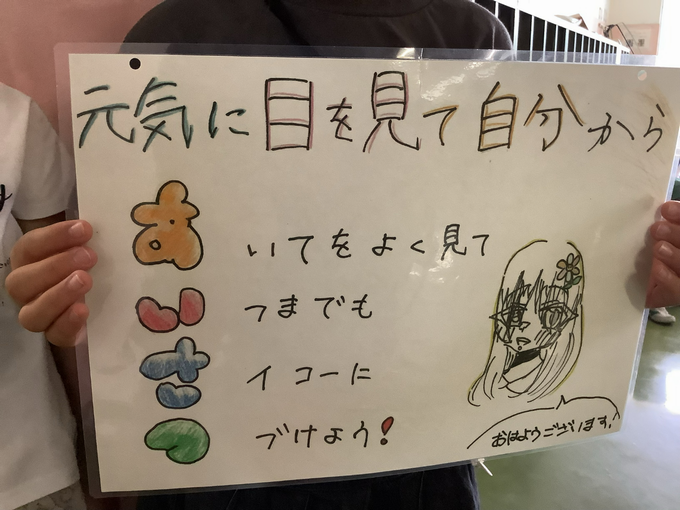 元気に目を見て自分から
あいてをよく見て
いつまでも
さイコーに
つづけよう!
おはようございます!